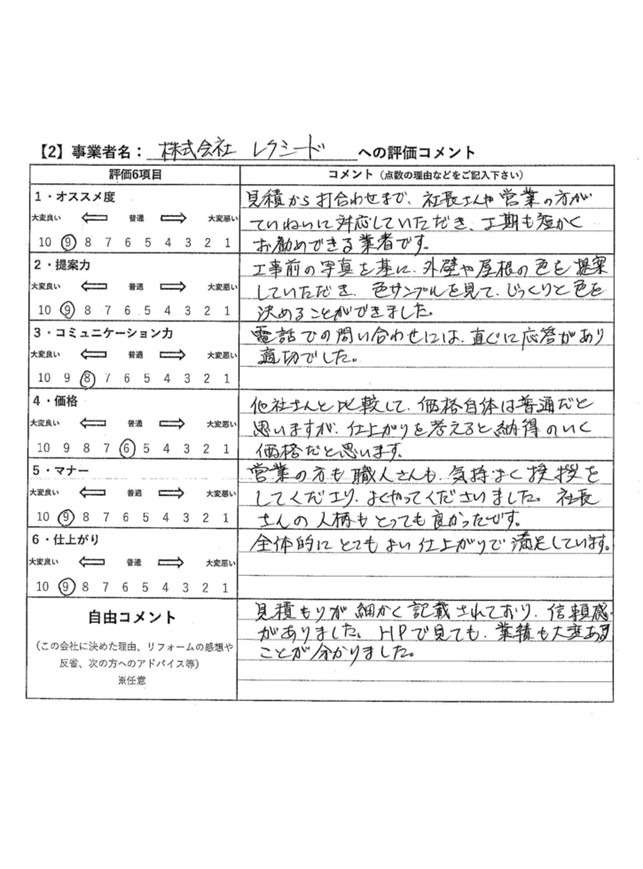 【2】事業者名： 株式会社 レクシード への評価コメント
評価6項目
コメント（点数の理由などをご記入下さい）
1・オススメ度
大変良い 普通 大変悪い
10 9 8 7 6 5 4 3 2 1
見積から打合わせまで、社長さんや営業の方が
ていねいに対応していただき、工期も短かく
お勧めできる業者です。
2・提案力
大変良い 普通 大変悪い
10 9 8 7 6 5 4 3 2 1
工事前の写真を基に、外壁や屋根の色を提案
していただき、色サンプルを見て、じっくりと色を
決めることができました。
3・コミュニケーション力
大変良い 普通 大変悪い
10 9 8 7 6 5 4 3 2 1
電話での問い合わせには、直ぐに応答があり
適切でした。
4・価格
大変良い 普通 大変悪い
10 9 8 7 6 5 4 3 2 1
他社さんと比較して、価格自体は普通だと
思いますが、仕上がりを考えると納得のいく
価格だと思います。
5・マナー
大変良い 普通 大変悪い
10 9 8 7 6 5 4 3 2 1
営業の方も職人さんも、気持よく挨拶を
してくださり、よくやってくださいました。社長
さんの人柄もとっても良かったです。
6・仕上がり
大変良い 普通 大変悪い
10 9 8 7 6 5 4 3 2 1
全体的にとてもよい仕上がりで満足しています。
自由コメント
（この会社に決めた理由、リフォームの感想や
反省、次の方へのアドバイス等）
※任意
見積もりが細かく記載されており、信頼感
がありました。HPで見ても、業績も大変ある
ことが分かりました。